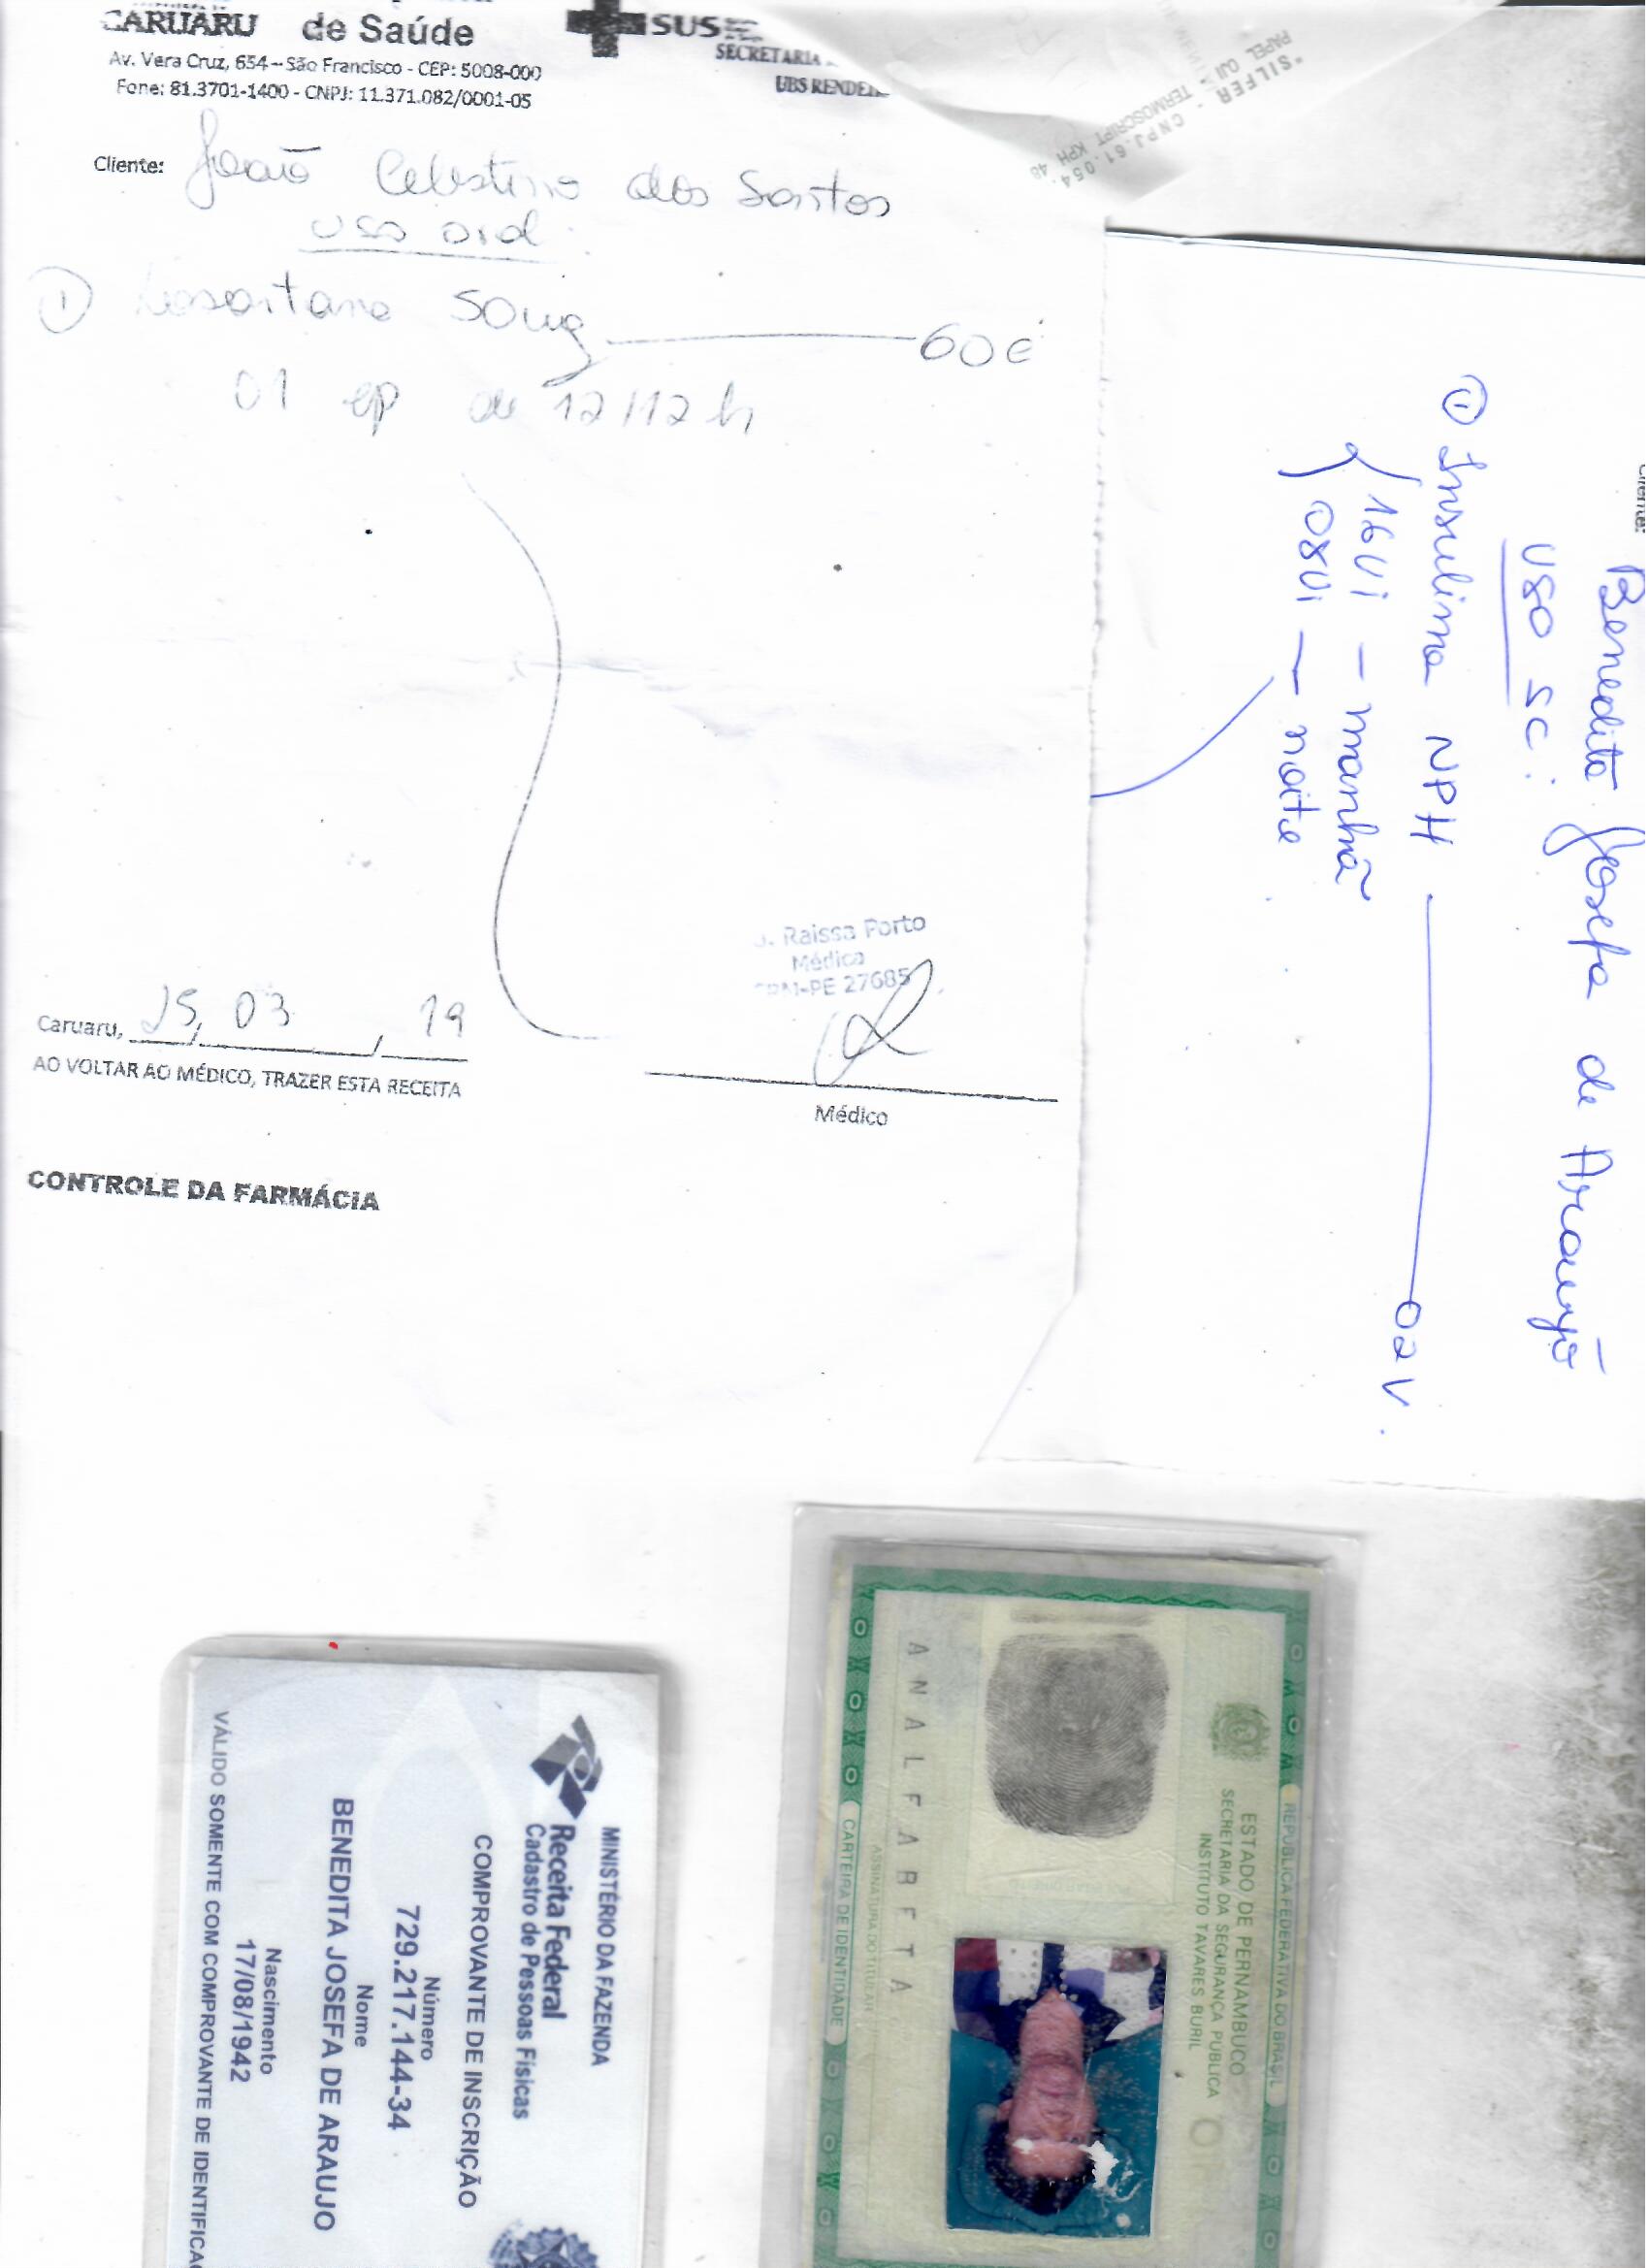 CARUARU de Saúde
SUS
SECRETARIA
UBS RENDEI
Av. Vera Cruz, 654 - São Francisco - CEP: 5008-000
Fone: 81.3701-1400 - CNPJ: 11.371.082/0001-05
Cliente: João Celestino dos Santos
uso oral
1 Losartana 50mg 60c
01 cp de 12/12h
J. Raissa Porto
Médica
CRM-PE 27685
Caruaru, 25, 03, 19
AO VOLTAR AO MÉDICO, TRAZER ESTA RECEITA
Médico
CONTROLE DA FARMÁCIA
"SILFER"
CNPJ.61.054.
TERMOSCRIPT KPH 48
PAPEL OJI
Cliente: Benedita Josefa de Araujo
USO SC:
1 Insulina NPH 02 V.
16Ui - manhã
08Ui - noite
MINISTÉRIO DA FAZENDA
Receita Federal
Cadastro de Pessoas Físicas
COMPROVANTE DE INSCRIÇÃO
Número
729.217.144-34
Nome
BENEDITA JOSEFA DE ARAUJO
Nascimento
17/08/1942
VÁLIDO SOMENTE COM COMPROVANTE DE IDENTIFICAÇ
REPÚBLICA FEDERATIVA DO BRASIL
ESTADO DE PERNAMBUCO
SECRETARIA DA SEGURANÇA PÚBLICA
INSTITUTO TAVARES BURIL
ANALFABETA
ASSINATURA DO TITULAR
CARTEIRA DE IDENTIDADE